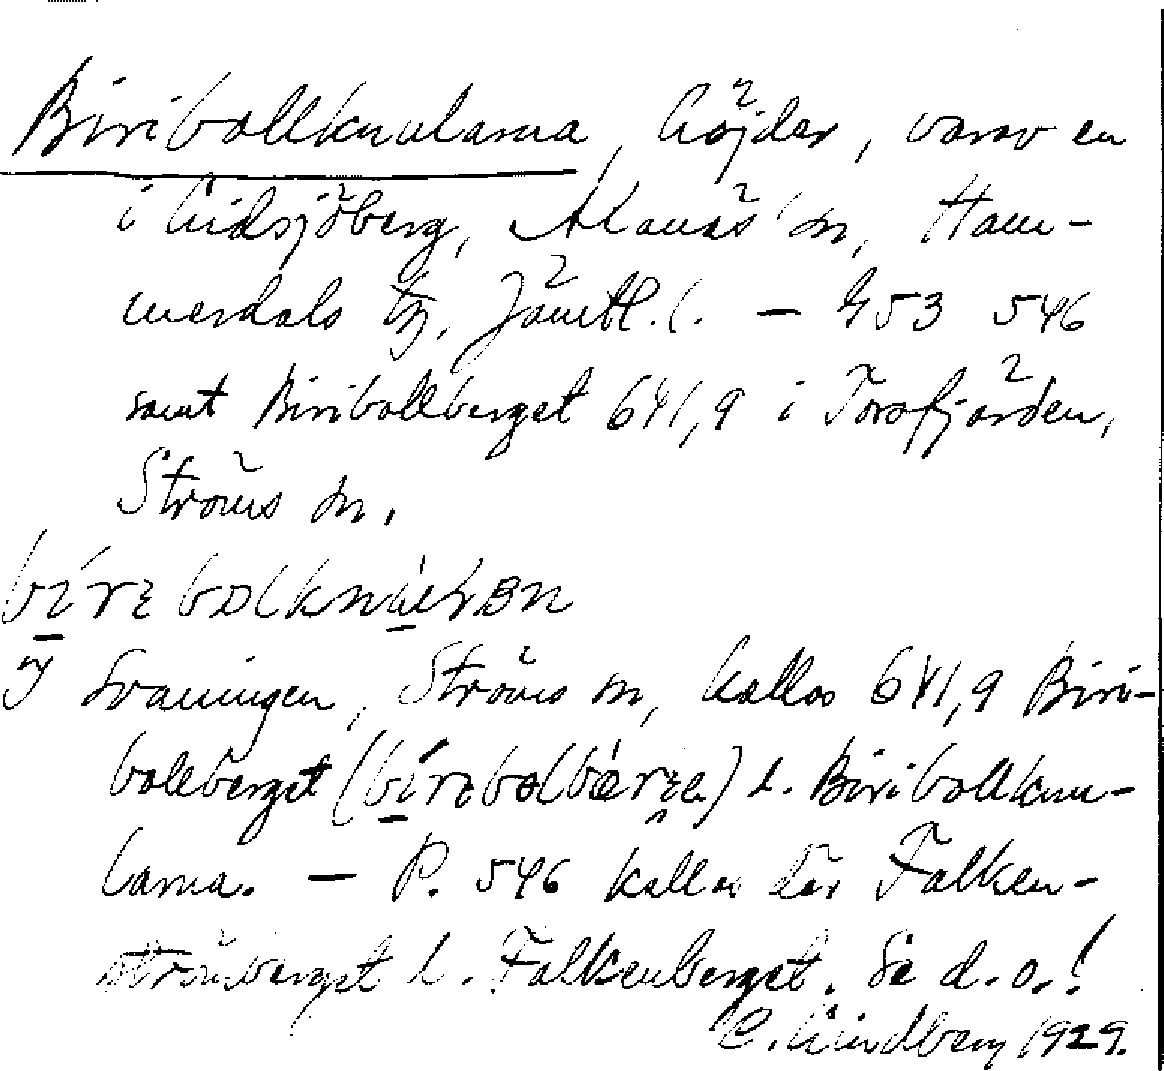 Biribollknularna, höjder, varav en
i Lidsjöberg, Alanäs sn, Ham-
merdals tg, Jämtl. l. – G53 546
samt Biribollberget 641,9 i Torsfjärden,
Ströms sn.
I Svaningen, Ströms sn, kallas 641,9 Biri-
bollberget () l. Biribollknu-
larna. – P. 546 kallas där Falken-
strömberget l. Falkenberget. Se d. o.!
C. Lindberg 1929.